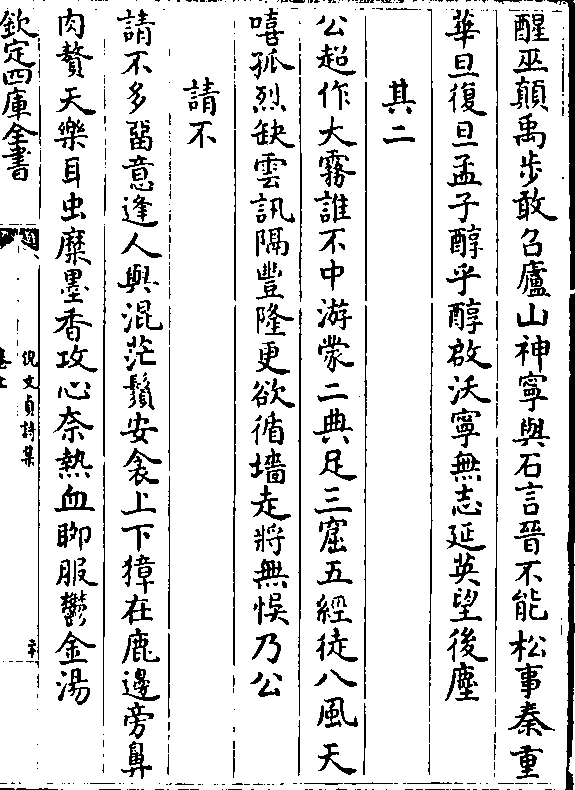 醒巫顛禹步敢召廬山神寧與石言晉不能松事秦重
華旦復旦孟子醇乎醇啟沃寧無志延英望後塵
其二
公超作大霧誰不中游蒙二典足三窟五經徒八風天
嘻孤烈缺雲訊隔豐隆更欲循墻走將無悞乃公
請不
請不多畱意逢人與混茫鬚安衾上下獐在鹿邊旁鼻
肉贅天樂耳虫糜墨香攻心奈熱血聊服鬱金湯
欽定四庫全書
倪文貞詩集
卷上